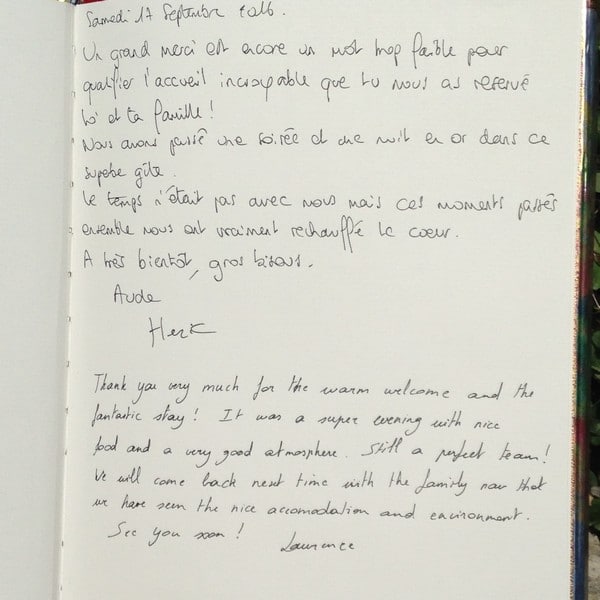 Samedi 17 Septembre 2016.
Un grand merci est encore un mot trop faible pour
qualifier l'accueil incroyable que tu nous as reservé
toi et ta famille !
Nous avons passé une soirée et une nuit en or dans ce
superbe gîte.
Le temps n'était pas avec nous mais ces moments passés
ensemble nous ont vraiment rechauffé le coeur.
A très bientôt, gros bisous.
Aude
Thank you very much for the warm welcome and the
fantastic stay! It was a super evening with nice
food and a very good atmosphere. Still a perfect team!
We will come back next time with the family now that
we have seen the nice accomodation and environment.
See you soon!
Laurence